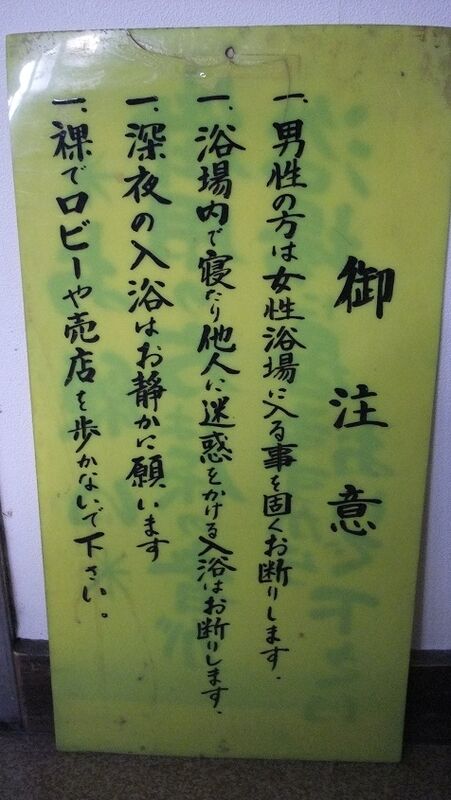 御注意
一、男性の方は女性浴場に入る事を固くお断りします。
一、浴場内で寝たり他人に迷惑をかける入浴はお断りします。
一、深夜の入浴はお静かに願います
一、裸でロビーや売店を歩かないで下さい。